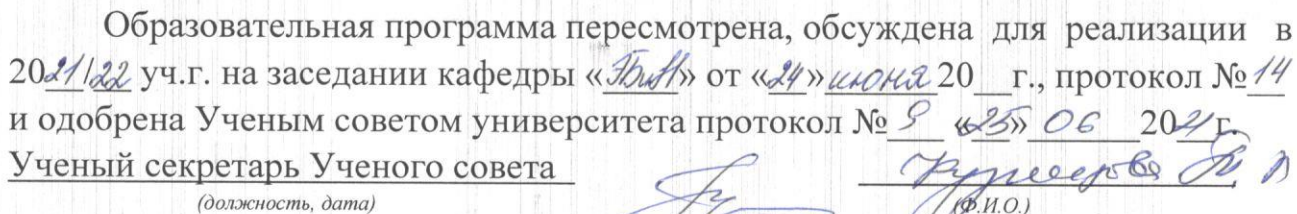 Образовательная программа пересмотрена, обсуждена для реализации в
2021/22 уч.г. на заседании кафедры «» от «24» июня 20__г., протокол №14
и одобрена Ученым советом университета протокол № 9 «25» 06 2021г.
Ученый секретарь Ученого совета
(должность, дата) (Ф.И.О.)